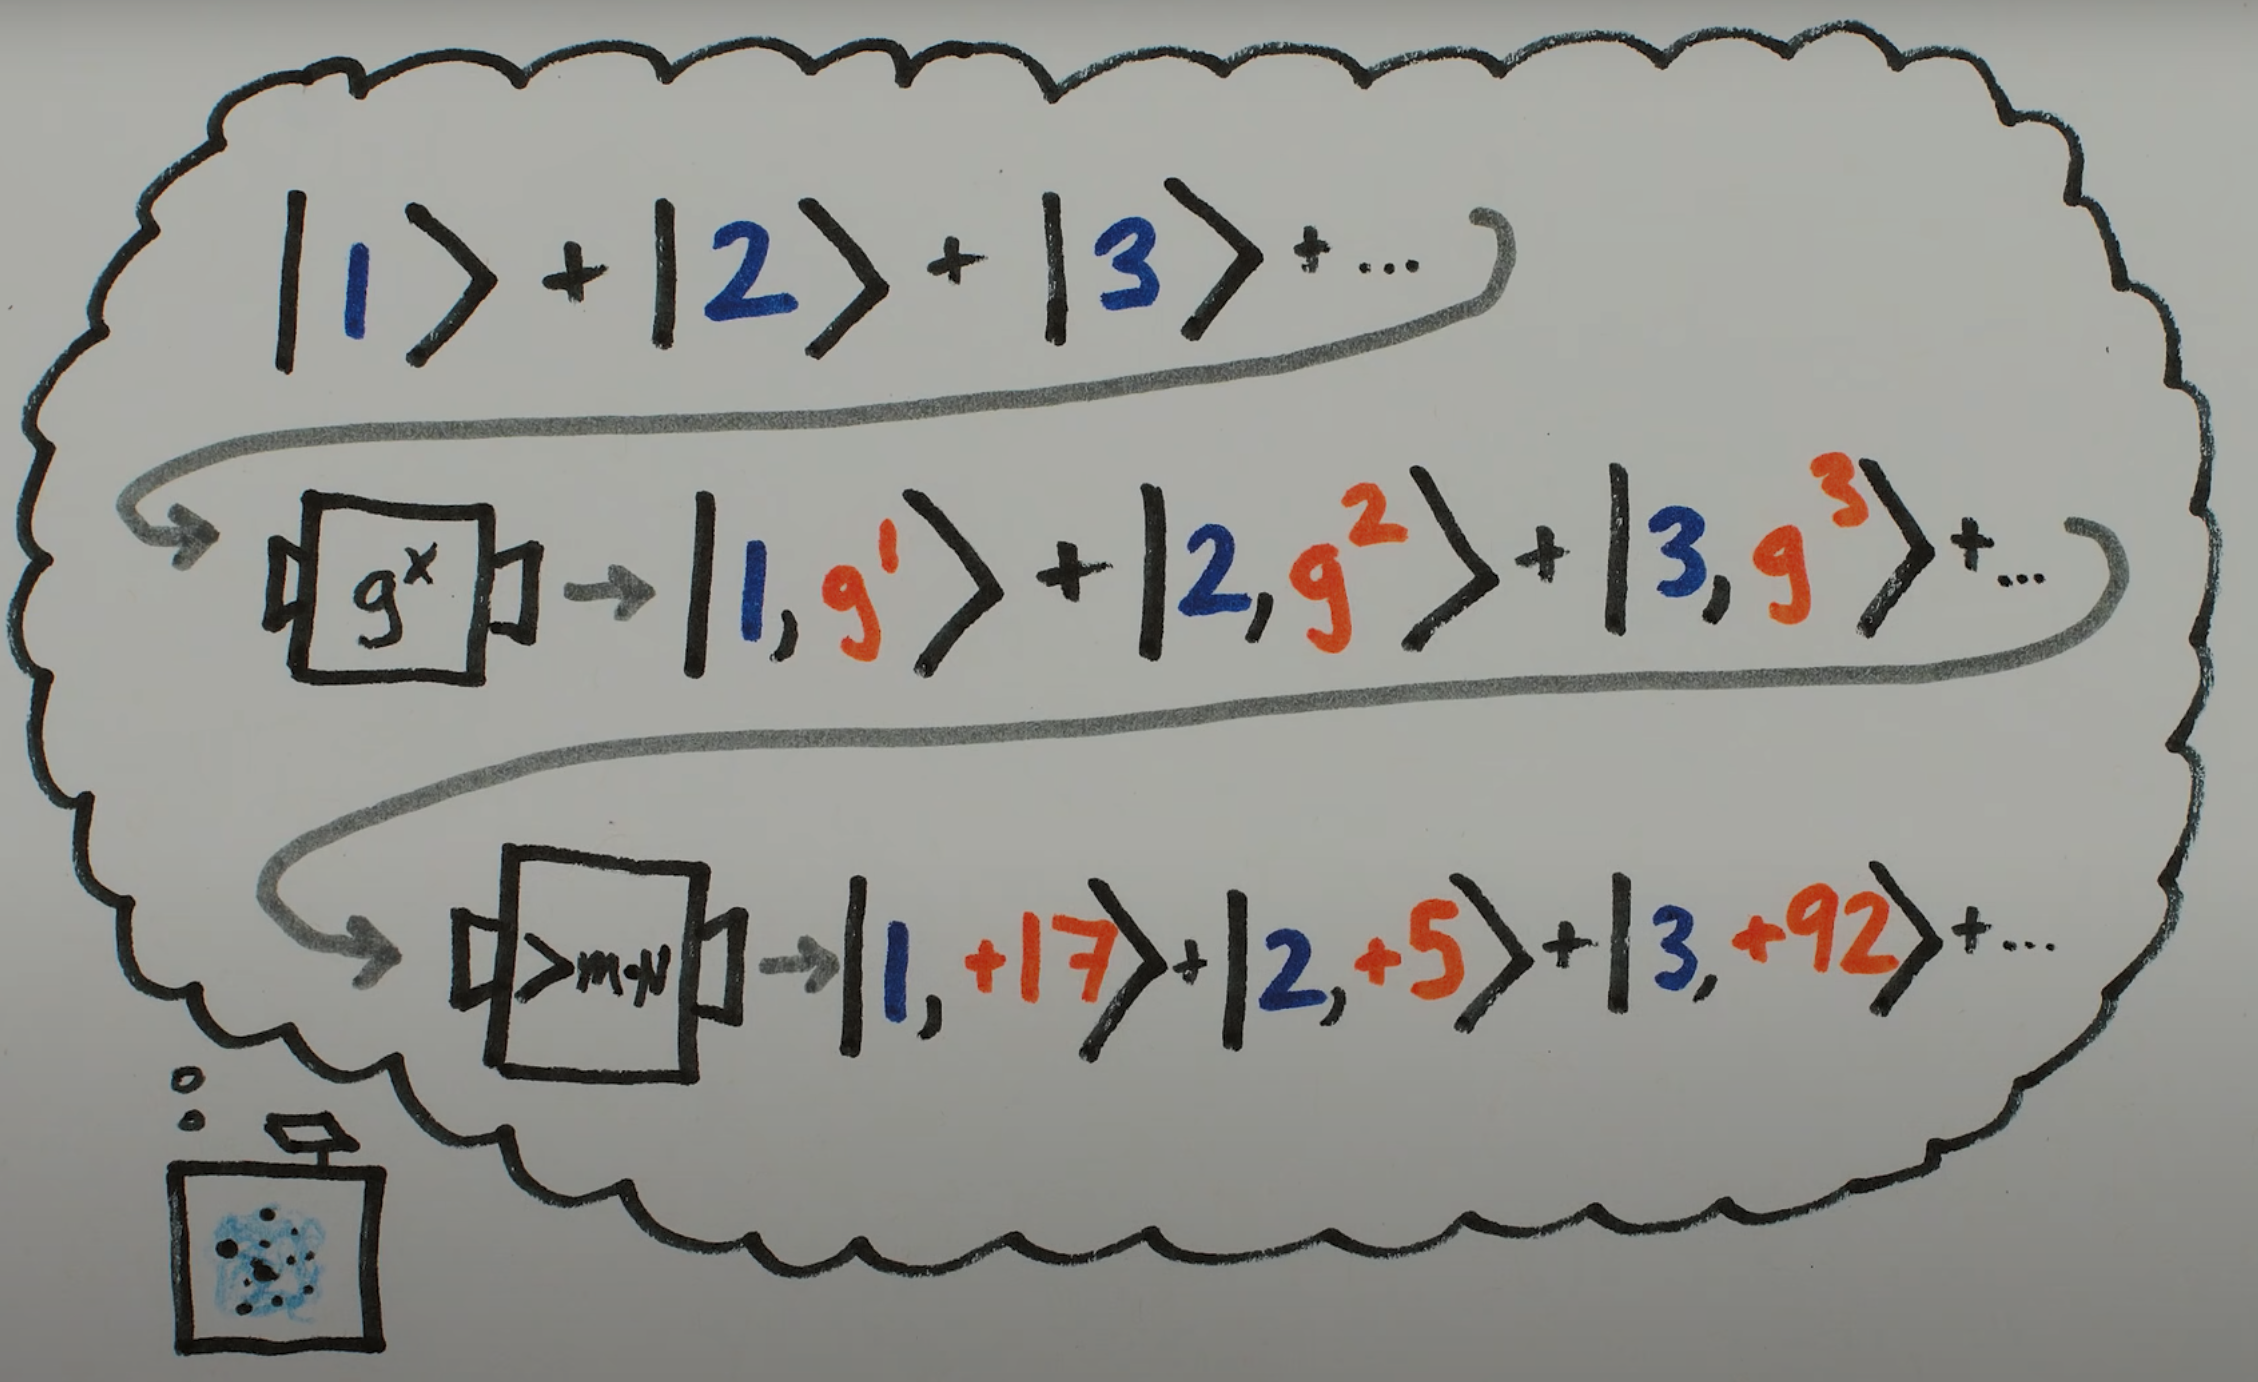 |1⟩ + |2⟩ + |3⟩ + ...
gˣ → |1, g¹⟩ + |2, g²⟩ + |3, g³⟩ + ...
>m·N → |1, +17⟩ + |2, +5⟩ + |3, +92⟩ + ...